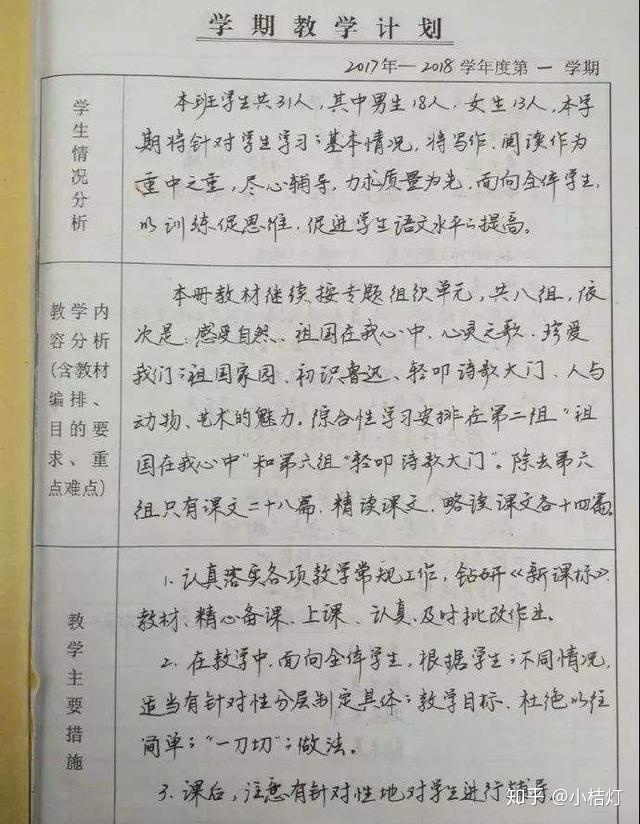 学期教学计划
2017年—2018学年度第一学期
学生情况分析
本班学生共31人,其中男生18人,女生13人,本学
期将针对学生学习的基本情况,将写作、阅读作为
重中之重,尽心辅导,力求质量为先,面向全体学生,
以训练促思维,促进学生语文水平的提高。
教学内
容分析
(含教材
编排、
目的要
求、重
点难点)
本册教材继续按专题组织单元,共八组,依
次是:感受自然、祖国在我心中、心灵之歌、珍爱
我们的祖国家园、初识鲁迅、轻叩诗歌大门、人与
动物、艺术的魅力。综合性学习安排在第二组“祖
国在我心中”和第六组“轻叩诗歌大门”。除去第六
组只有课文二十八篇,精读课文、略读课文各十四篇。
教学主要措施
1.认真落实各项教学常规工作,钻研《新课标》、
教材、精心备课、上课、认真、及时批改作业。
2.在教学中,面向全体学生,根据学生的不同情况,
适当有针对性分层制定具体的教学目标、杜绝以往
简单的“一刀切”的做法。
3.课后,注意有针对性地对学生进行辅导。
知乎 @小桔灯